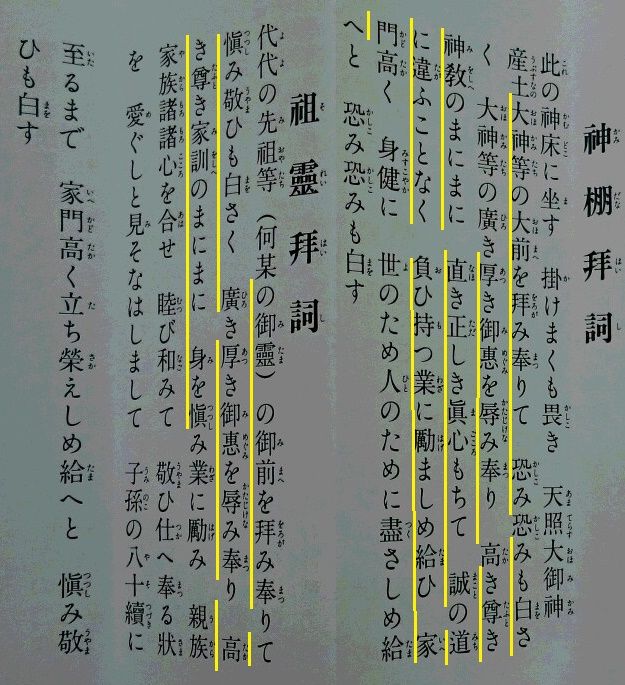 神棚拜詞
此の神床に坐す 掛けまくも畏き 天照大御神
産土大神等の大前を拜み奉りて 恐み恐みも白さ
く 大神等の廣き厚き御惠を辱み奉り 高き尊き
神敎のまにまに 直き正しき眞心もちて 誠の道
に違ふことなく 負ひ持つ業に勵ましめ給ひ 家
門高く 身健に 世のため人のために盡さしめ給
へと 恐み恐みも白す
祖靈拜詞
代代の先祖等（何某の御靈）の御前を拜み奉りて
愼み敬ひも白さく 廣き厚き御惠を辱み奉り 高
き尊き家訓のまにまに 身を愼み業に勵み 親族
家族諸諸心を合せ 睦び和みて 敬ひ仕へ奉る狀
を 愛ぐしと見そなはしまして 子孫の八十續に
至るまで 家門高く立ち榮えしめ給へと 愼み敬
ひも白す